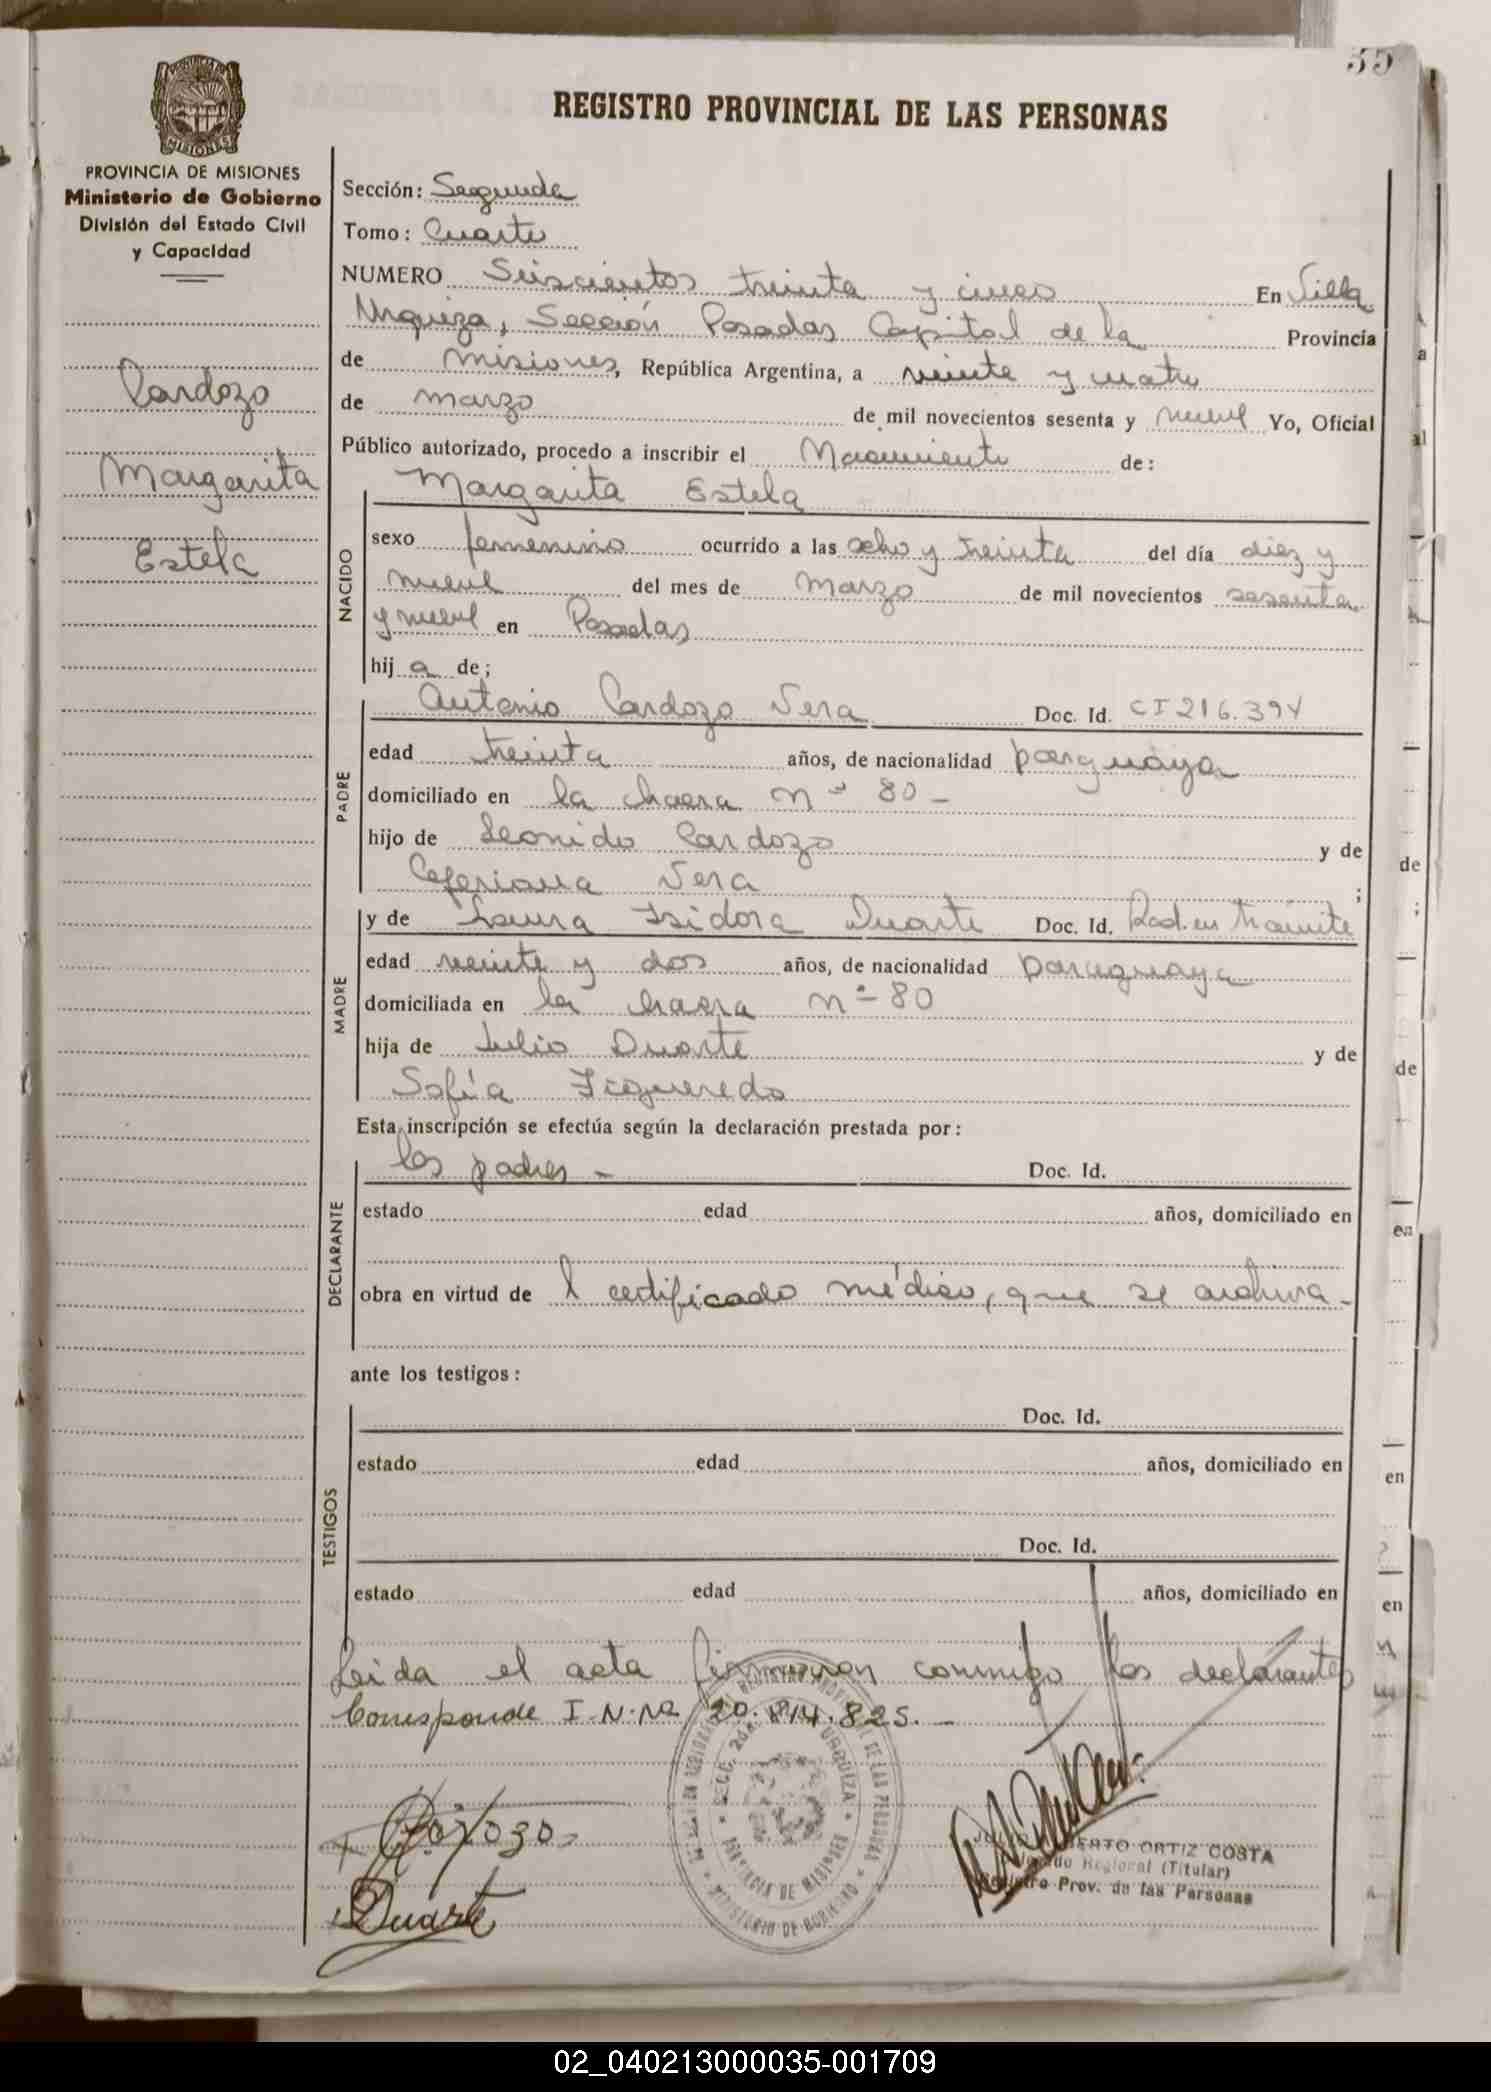 55
REGISTRO PROVINCIAL DE LAS PERSONAS
MISIONES
PROVINCIA DE MISIONES
Ministerio de Gobierno
División del Estado Civil
y Capacidad
Cardozo
Margarita
Estela
Sección: Segunda
Tomo: Cuarto
NUMERO Seiscientos treinta y cinco En Villa
Urquiza, Sección Posadas Capital de la Provincia
de misiones, República Argentina, a veinte y cuatro
de marzo de mil novecientos sesenta y nueve Yo, Oficial
Público autorizado, procedo a inscribir el Nacimiento de:
Margarita Estela
NACIDO
sexo femenino ocurrido a las ocho y treinta del día diez y
nueve del mes de marzo de mil novecientos sesenta
y nueve en Posadas
hij a de;
PADRE
Antonio Cardozo Vera Doc. Id. CI 216.394
edad treinta años, de nacionalidad paraguaya
domiciliado en la chacra nº 80 -
hijo de Leonido Cardozo y de
Ceferiana Vera ;
MADRE
y de Laura Isidora Duarte Doc. Id. Rad. en trámite
edad veinte y dos años, de nacionalidad paraguaya
domiciliada en la chacra nº 80
hija de Julio Duarte y de
Sofía Figueredo
Esta inscripción se efectúa según la declaración prestada por:
DECLARANTE
los padres - Doc. Id.
estado edad años, domiciliado en
obra en virtud de l certificado médico, que se archiva -
ante los testigos:
TESTIGOS
Doc. Id.
estado edad años, domiciliado en
Doc. Id.
estado edad años, domiciliado en
Leida el acta firmaron conmigo los declarantes
Corresponde I.N.Nº 20.814.825. -
Cardozo
Duarte
URQUIZA
PROVINCIA DE MISIONES
MINISTERIO DE GOBIERNO
ORTIZ COSTA
Regional (Titular)
Registro Prov. de las Personas
02_040213000035-001709